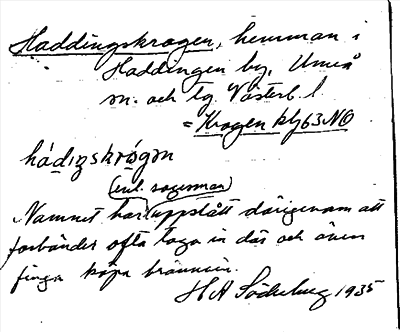 Haddingskrogen, hemman i
Haddingen by, Umeå
sn. och tg Västerb. l.
= Krogen bl 63 NO
hádiŋskrògɘn
(enl. sägerman)
Namnet har uppstått därigenom att
forbönder ofta togo in där och även
fingo köpa brännvin.
H A Söderberg 1935